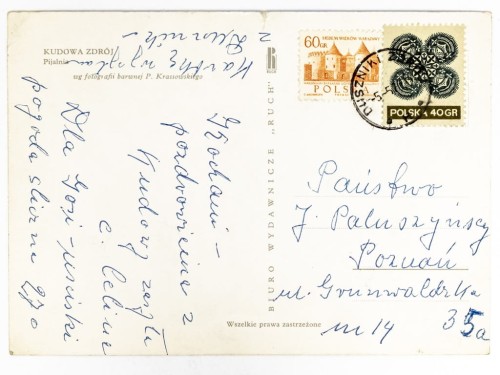 KUDOWA ZDRÓJ
Pijalnia
wg fotografii barwnej P. Krassowskiego
Kartkę
z Dusznik
Kochani –
pozdrowienia z
Kudowy zasyła
C. Celina
Dla Gosi – uściski
pogoda śliczna 27°
BIURO WYDAWNICZE "RUCH"
Wszelkie prawa zastrzeżone
60 GR
POLSKA
POLSKA 40 GR
DUSZNIKI ZDRÓJ
Państwo
J. Paluszyńscy
Poznań
ul. Grunwaldzka
m 14 35a